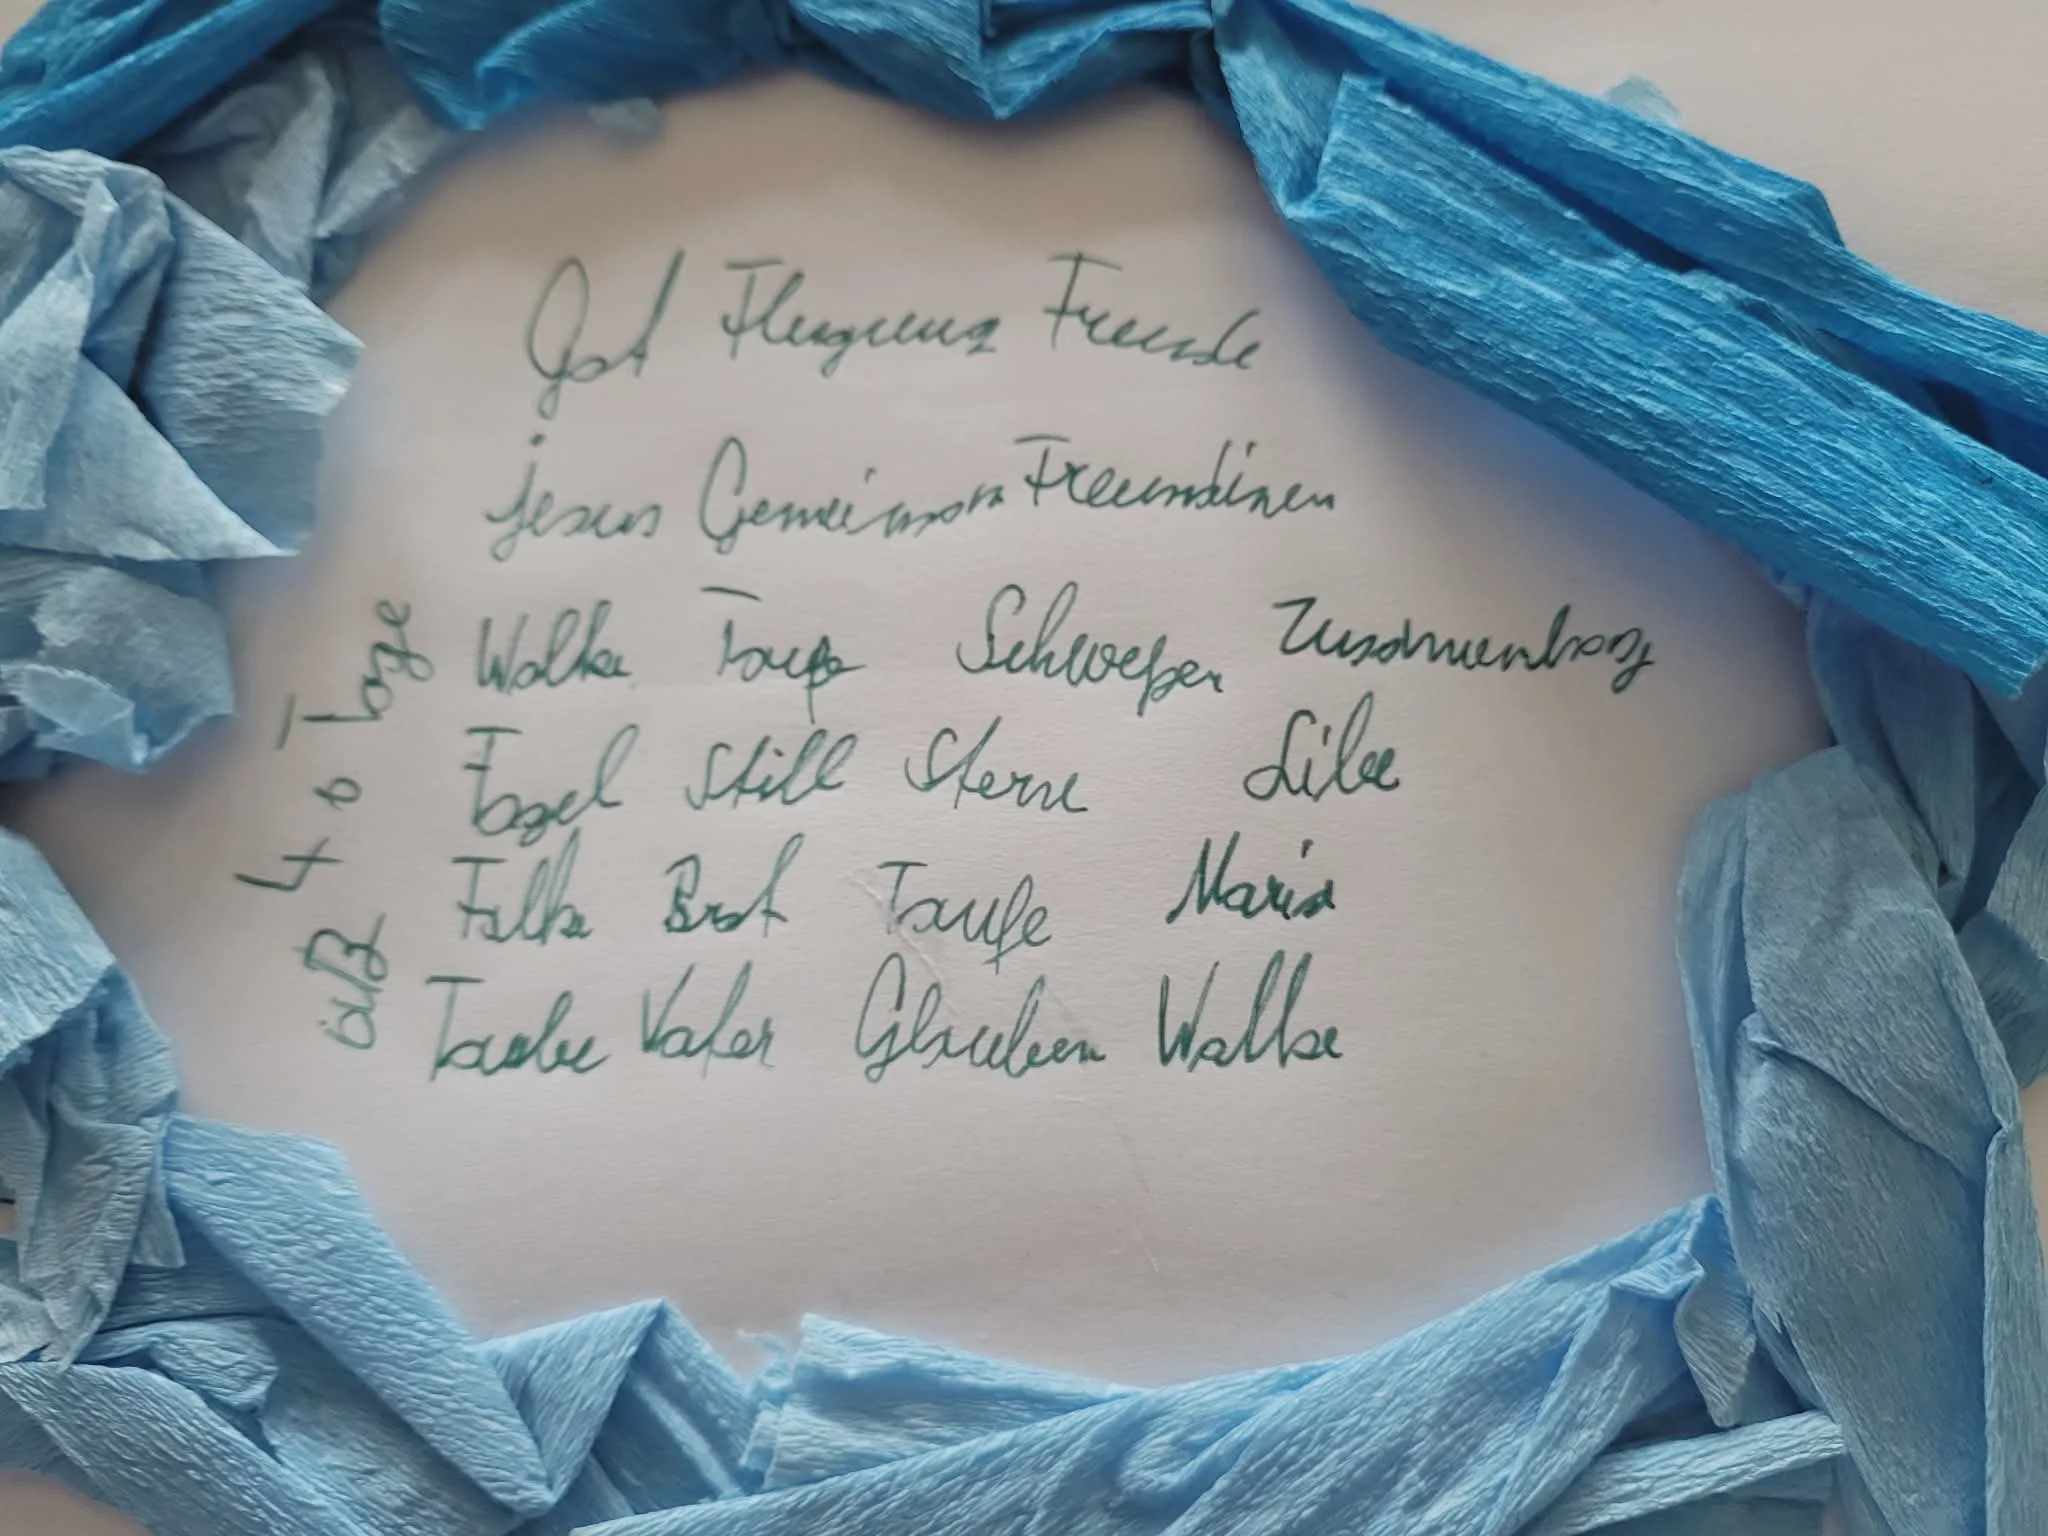 Got Flugzeug Freunde
jesus Gemeinsam Freundinen
Wolke Taufe Schweßer Zusammenhang
Fogel Still Sterne Libe
Falke Brot Taufe Maria
Taube Vater Glauben Wolke